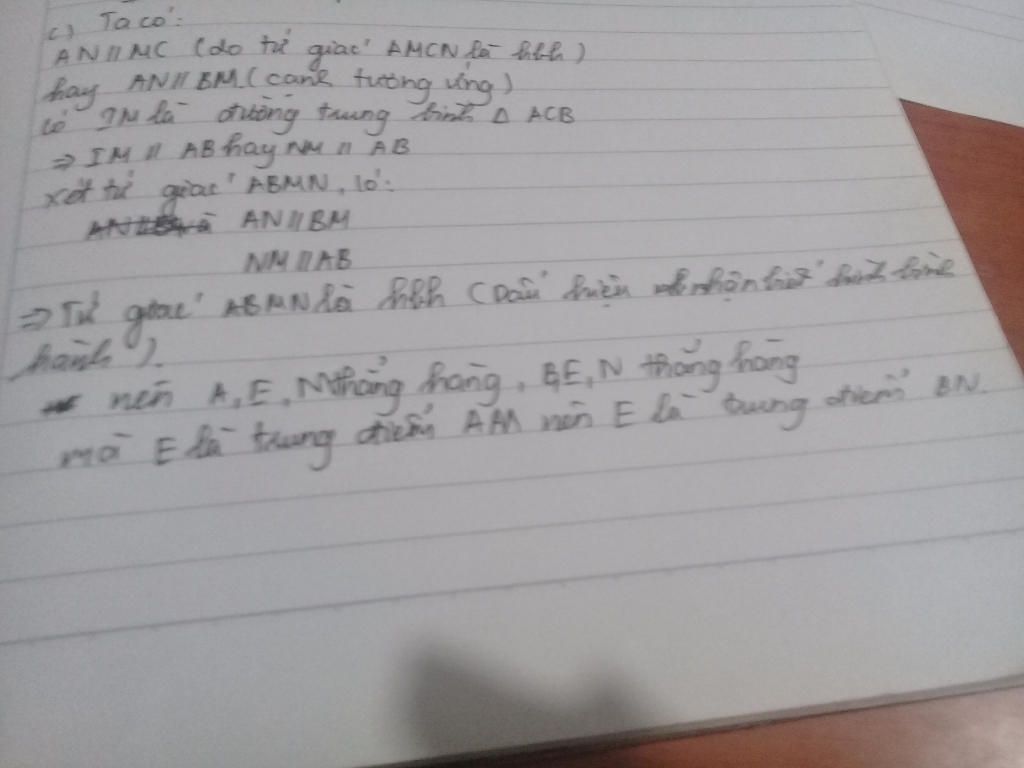 c) Ta có:
AN // MC (do tứ giác AMCN là hbh)
hay AN // BM (cạnh tương ứng)
có IM là đường trung bình Δ ACB
⇒ IM // AB hay NM // AB
xét tứ giác ABMN, có:
AN // BM
NM // AB
⇒ Tứ giác ABMN là hbh (Dấu hiệu nhận biết hình bình
hành).
nên A, E, M thẳng hàng, B, E, N thẳng hàng
mà E là trung điểm AM nên E là trung điểm BN.